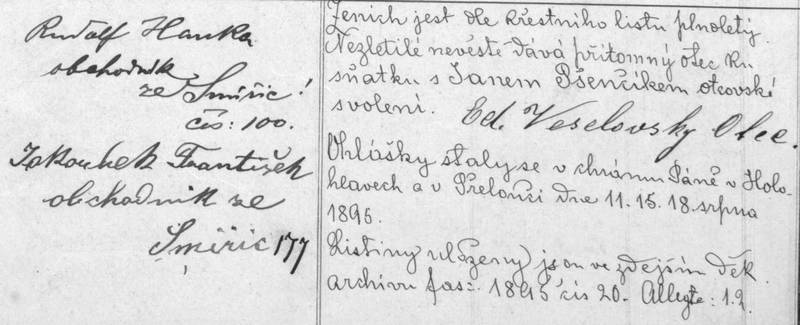 Rudolf Hanka
obchodník
ze Smiřic!
čís: 100.
Jakoubek František
obchodník ze
Smiřic 177
Ženich jest dle křestního listu plnoletý.
Nezletilé nevěstě dává přítomný otec ku
sňatku s Janem Pšenčíkem otcovské
svolení.
Ed. Veselovsky Otec.
Ohlášky staly se v chrámu Páně v Holo-
hlavech a v Přelouči dne 11. 15. 18. srpna
1895.
Listiny uloženy jsou ve zdejším děk.
archivu fasc. 1895 čís 20. Allegte: 1.2.